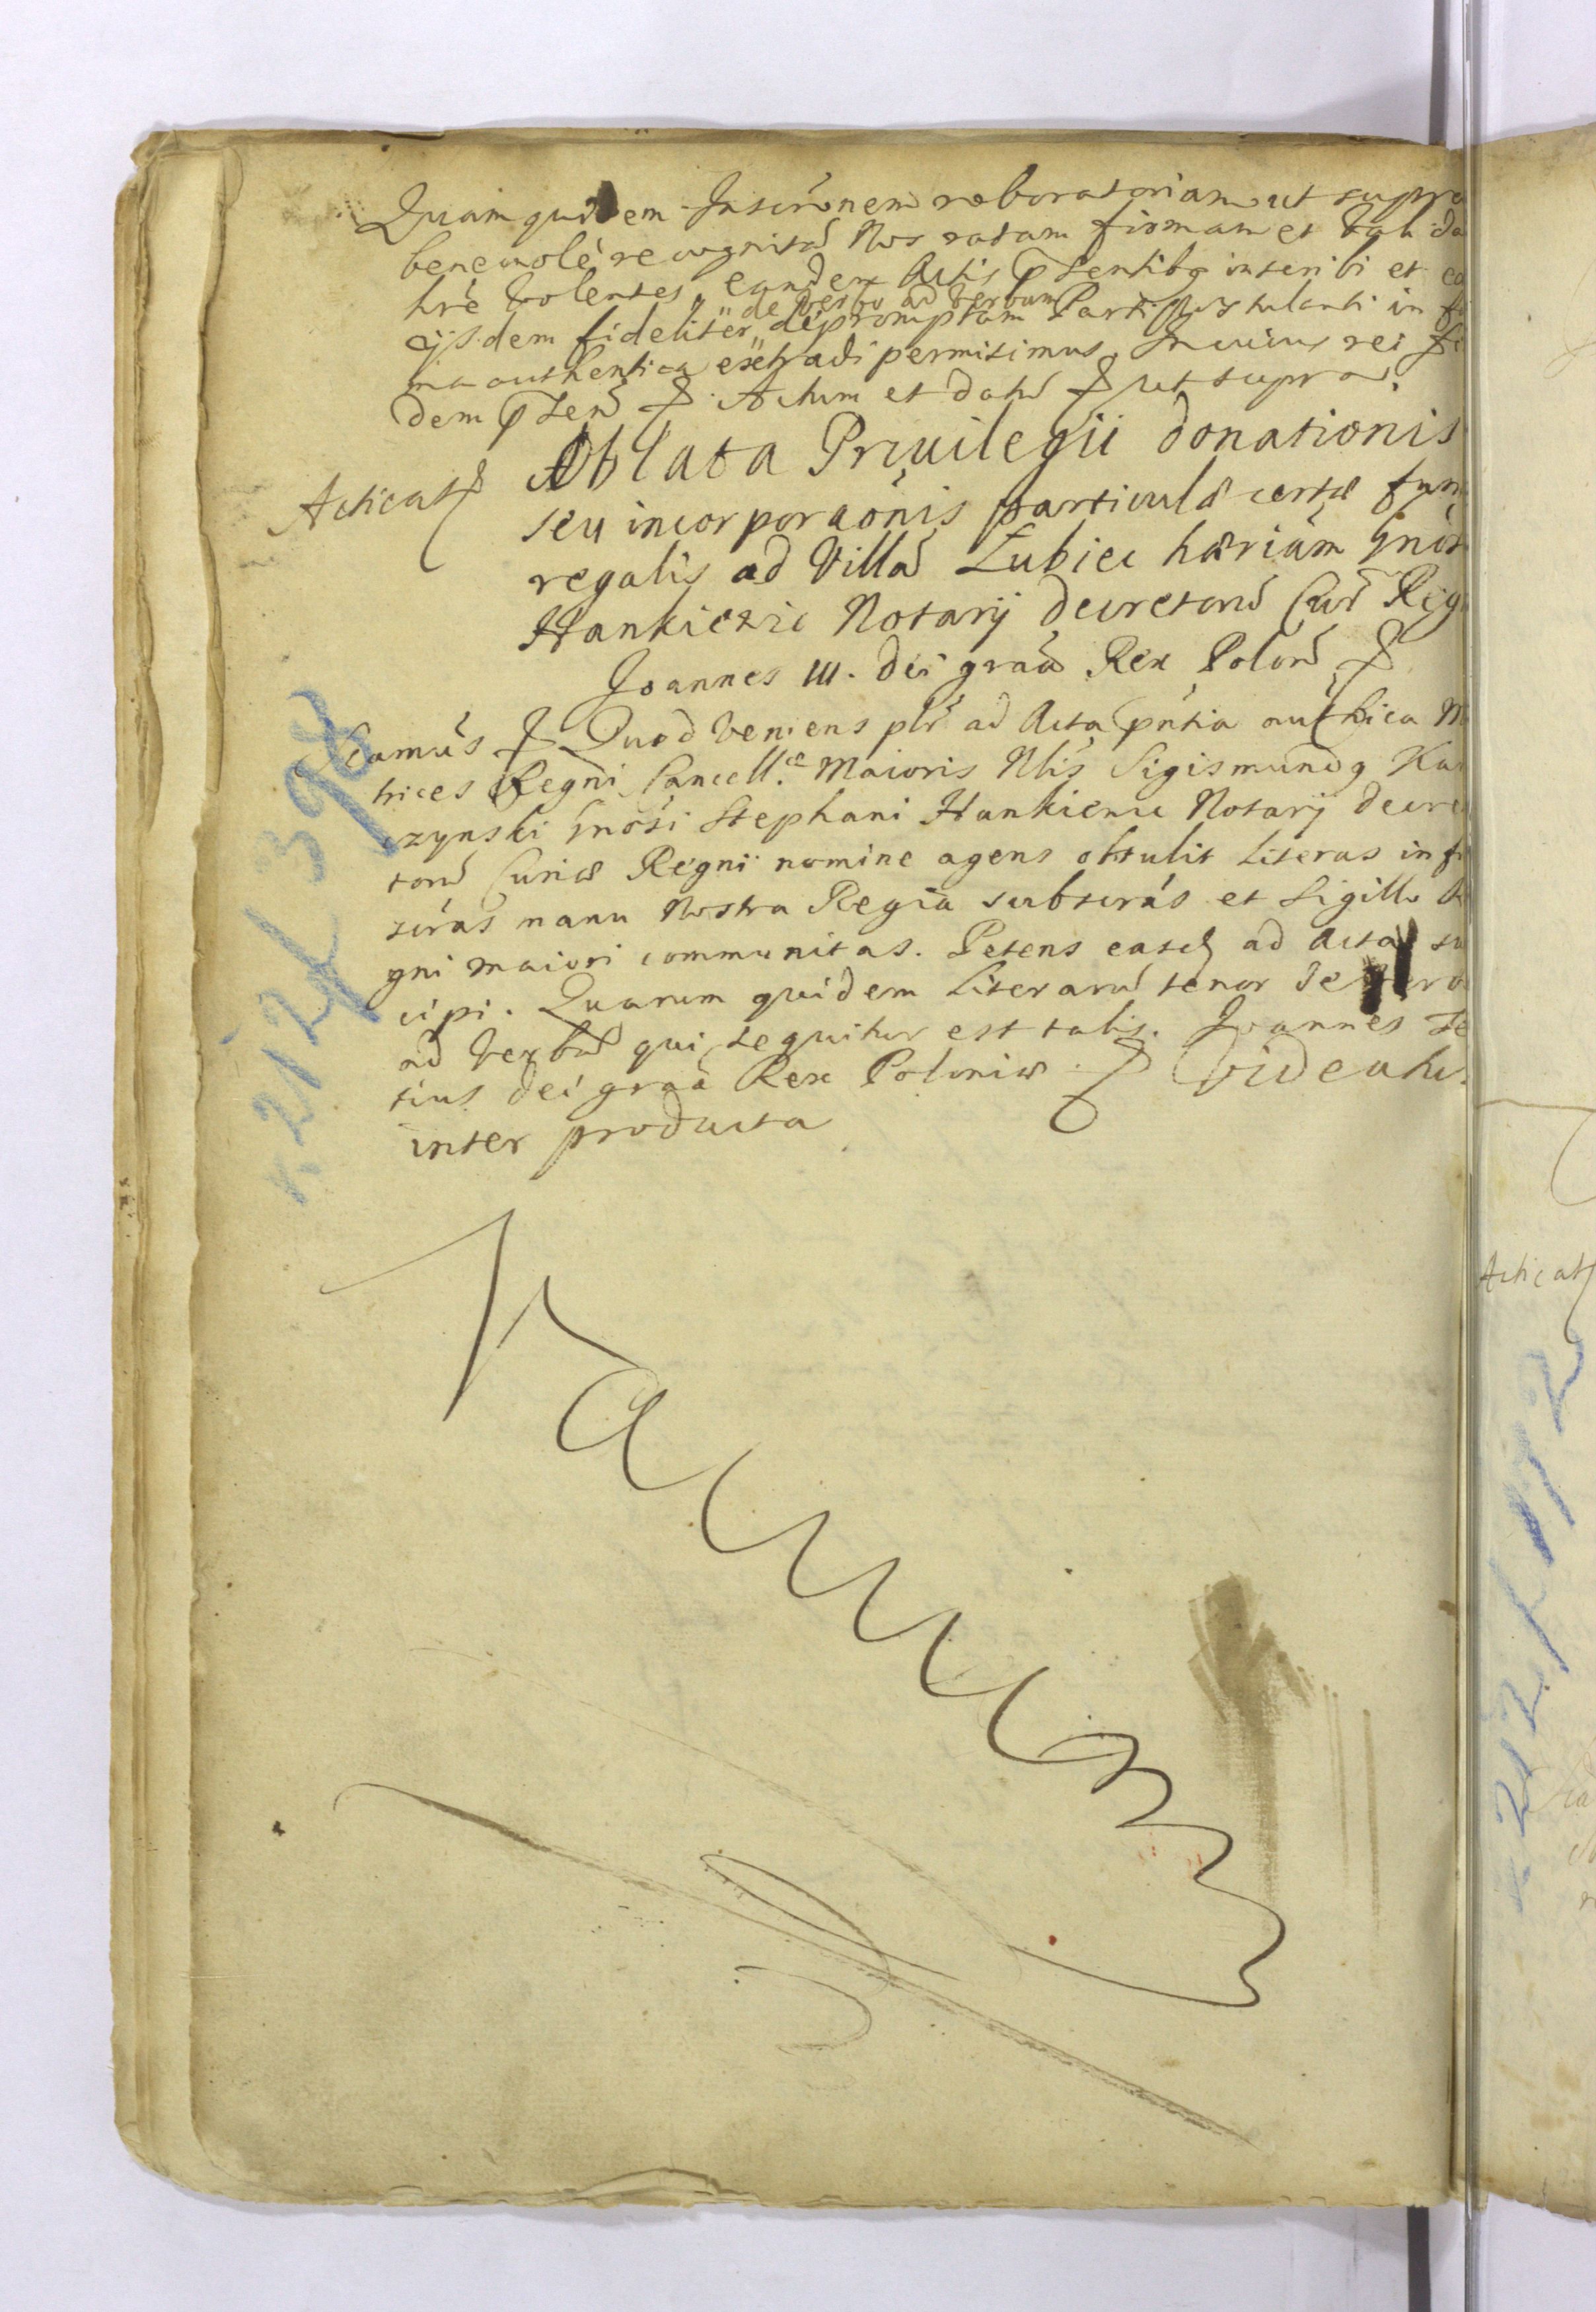 Quam quidem Inscrõnem roboratoriam ut supra
benevolè recognitã Nos ratam firmam et Vali da
hrè Volentes, eandem Actis pñsentibq inscribi et
de verbo ad verbum
ijsdem fideliter depromptam Parti Postulanti in
ma authentica extradi permisimus. In cuius rei
dem pñsen Actum et datũ ut supra.
Acticat
Oblata Privilegii donationis
seu incorporãonis particulæ certæ fun
regalis ad Villã Lubiec hæriam Gnosi
Hankiewic Notarij decretorũ Cur Reg
Joannes III. dei graã Rex Polonũ
camus Quod Veniens plr ad Acta pñtia authica M
trices Regni Cancell.æ Maioris Nlis Sigismundq Ka
czynski Gnosi Stephani Hankiewic Notarij decre
torũ Curiæ Regni nomine agens obtulit Literas infra
scrãs manu Nostra Regia subscrãs et Sigillo Re
gni maiori communitas. Petens easd ad Acta su
cipi. Quarum quidem Literarũ tenor de
ad Verbũ qui sequitur est talis. Joannes Te
tius dei graã Rex Poloniæ Videatur
inter producta
k. 212 398
Acticat
k. 212